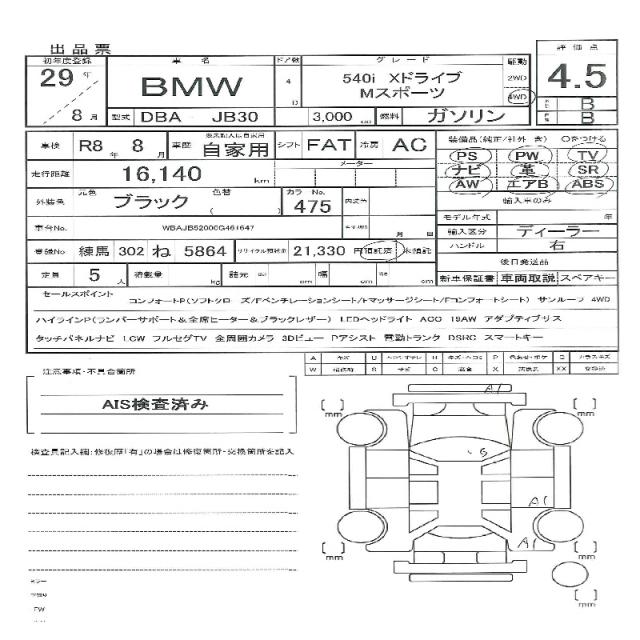 出品票
初年度登録 車名 ドア数 グレード 駆動 評価点
29年 BMW 4 540i Xドライブ 2WD 4.5
8月 D Mスポーツ 4WD B
型式 DBA JB30 3,000 燃料 ガソリン B
車検 R8年8月 車歴 自家用 シフト FAT 冷房 AC
装備品(純正/社外 含) ○をつける
PS PW TV
走行距離 16,140 km メーター
ナビ 革 SR
AW エアB ABS
外装色 元色 ブラック 色替 カラーNo. 475
輸入車のみ
モデル年式 年
車台No. WBAJB52000G461647 月 日
輸入区分 ディーラー
登録No 練馬 302 ね 5864 リサイクル預託金 21,330 円 預託済 未預託
ハンドル 右
定員 5人 積載量 kg 諸元 cm 幅 cm cm
後日発送品
新車保証書 車両取説 スペアキー
セールスポイント
コンフォートP(ソフトクローズ/Fベンチレーションシート/Fマッサージシート/Fコンフォートシート) サンルーフ 4WD
ハイラインP(ランバーサポート&全席ヒーター&ブラックレザー) LEDヘッドライト ACC 19AW アダプティブリス
タッチパネルナビ LCW フルセグTV 全周囲カメラ 3Dビュー Pアシスト 電動トランク DSRC スマートキー
A キズ U P G ガラスキズ
W S サビ C XX
注意事項・不具合箇所
AIS検査済み
検査員記入欄:修復歴「有」の場合は修復箇所・交換箇所を記入
A1
mm mm
G
A1
A1
mm mm
mm
PW